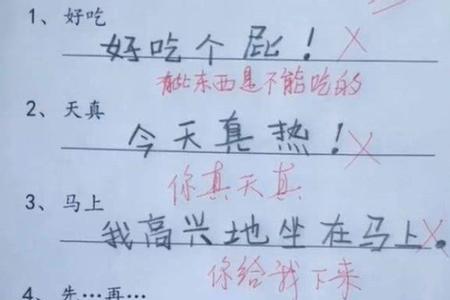 1、好吃
好吃个屁！
有些东西是不能吃的
2、天真
今天真热！
你真天真
3、马上
我高兴地坐在马上.
你给我下来
4、先…再…